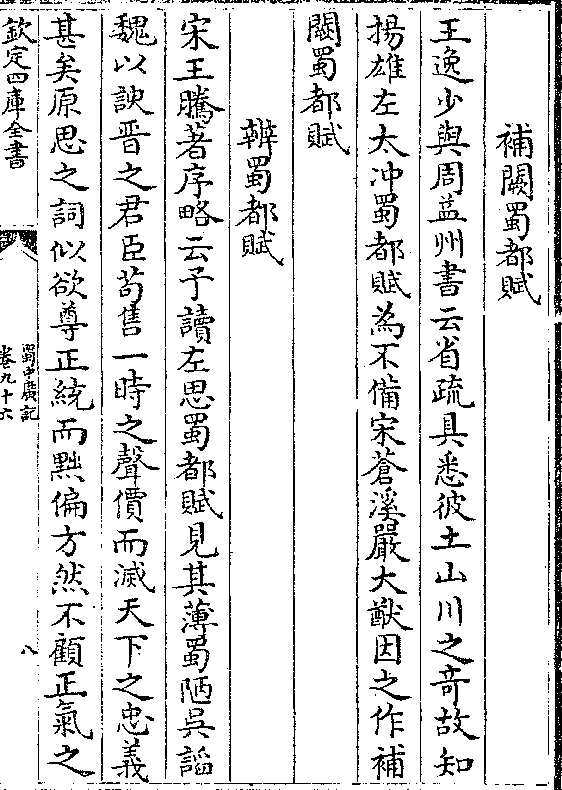 補闕蜀都賦
王逸少與周益州書云省疏具悉彼土山川之竒故知
揚雄左太冲蜀都賦為不備宋蒼溪嚴大猷因之作補
闕蜀都賦
辨蜀都賦
宋王騰著序略云予讀左思蜀都賦見其薄蜀陋吳謟
魏以諛晋之君臣茍售一時之聲價而滅天下之忠義
甚矣原思之詞似欲尊正統而黜偏方然不顧正氣之
欽定四庫全書
蜀中廣記
卷九十六
八